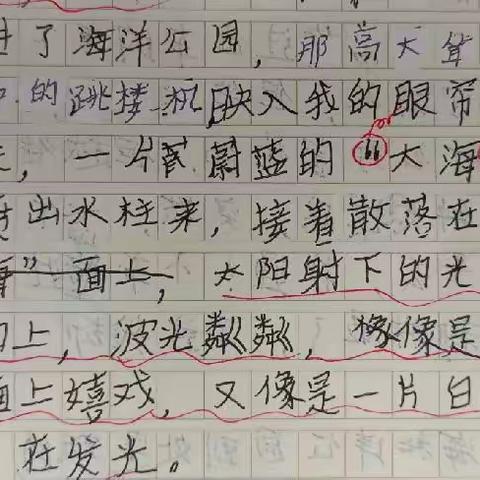 了海洋公园，那高大耸
的跳楼机映入我的眼帘
，一片蔚蓝的“大海
出水柱来，接着散落在
”面上，太阳射下的光
上，波光粼粼，像是
上嬉戏，又像是一片白
在发光。